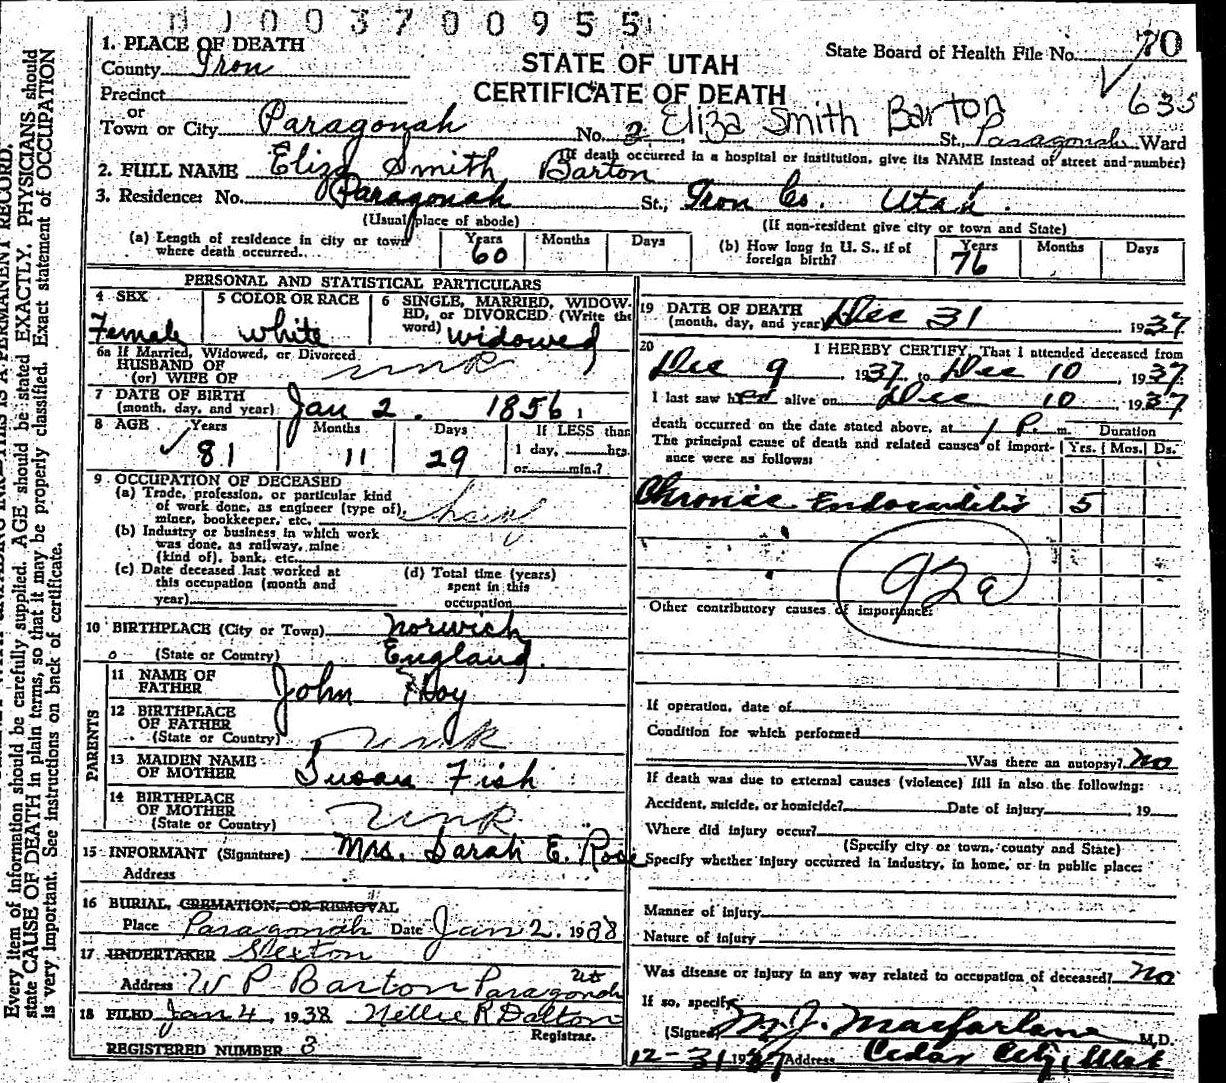 0 0 3 7 0 0 9 5 5
1. PLACE OF DEATH
County Iron
Precinct
or
Town or City Paragonah
STATE OF UTAH
CERTIFICATE OF DEATH
State Board of Health File No. 70
635
Eliza Smith Barton
No. St., Paragonah Ward
(If death occurred in a hospital or institution, give its NAME instead of street and number)
2. FULL NAME Eliza Smith Barton
3. Residence: No. Paragonah St., Iron Co. Utah.
(Usual place of abode) (If non-resident give city or town and State)
(a) Length of residence in city or town where death occurred.. Years 60 Months Days
(b) How long in U. S., if of foreign birth? Years 76 Months Days
PERSONAL AND STATISTICAL PARTICULARS
4 SEX Female
5 COLOR OR RACE white
6 SINGLE, MARRIED, WIDOWED, or DIVORCED (Write the word) widowed
6a If Married, Widowed, or Divorced
HUSBAND OF
(or) WIFE OF unk
7 DATE OF BIRTH
(month, day, and year) Jan 2. 1856
8 AGE Years 81 Months 11 Days 29 If LESS than
1 day, hrs.
or min.?
9 OCCUPATION OF DECEASED
(a) Trade, profession, or particular kind
of work done, as engineer (type of),
miner, bookkeeper, etc.
(b) Industry or business in which work
was done, as railway, mine
(kind of), bank, etc.
(c) Date deceased last worked at
this occupation (month and
year)
(d) Total time (years)
spent in this
occupation
10 BIRTHPLACE (City or Town) Norwich
(State or Country) England.
PARENTS
11 NAME OF
FATHER John Hoy
12 BIRTHPLACE
OF FATHER
(State or Country) unk
13 MAIDEN NAME
OF MOTHER Susan Fish
14 BIRTHPLACE
OF MOTHER
(State or Country) unk
15 INFORMANT (Signature) Mrs. Sarah E. Rose
Address
16 BURIAL, CREMATION, OR REMOVAL
Place Paragonah Date Jan 2. 1938
17 UNDERTAKER Sexton
Address W P Barton Paragonah
18 FILED Jan 4, 1938 Nellie R Dalton
Registrar.
REGISTERED NUMBER 3
19 DATE OF DEATH
(month, day, and year) Dec 31 1937
20 I HEREBY CERTIFY, That I attended deceased from
Dec 9, 1937, to Dec 10, 1937
I last saw her alive on Dec 10, 1937
death occurred on the date stated above, at 1 P. m. Duration
The principal cause of death and related causes of importance were as follows: Yrs. Mos. Ds.
Chronic Endocarditis 5
92a
Other contributory causes of importance:
If operation, date of
Condition for which performed
Was there an autopsy? No
If death was due to external causes (violence) fill in also the following:
Accident, suicide, or homicide? Date of injury , 19
Where did injury occur?
(Specify city or town, county and State)
Specify whether injury occurred in industry, in home, or in public place:
Manner of injury
Nature of injury
Was disease or injury in any way related to occupation of deceased? No
If so, specify
(Signed) M. J. Macfarlane M.D.
12-31 1937 Address Cedar City, Utah
Every item of information should be carefully supplied. AGE should be stated EXACTLY. PHYSICIANS should
state CAUSE OF DEATH in plain terms, so that it may be properly classified. Exact statement of OCCUPATION
is very important. See instructions on back of certificate.